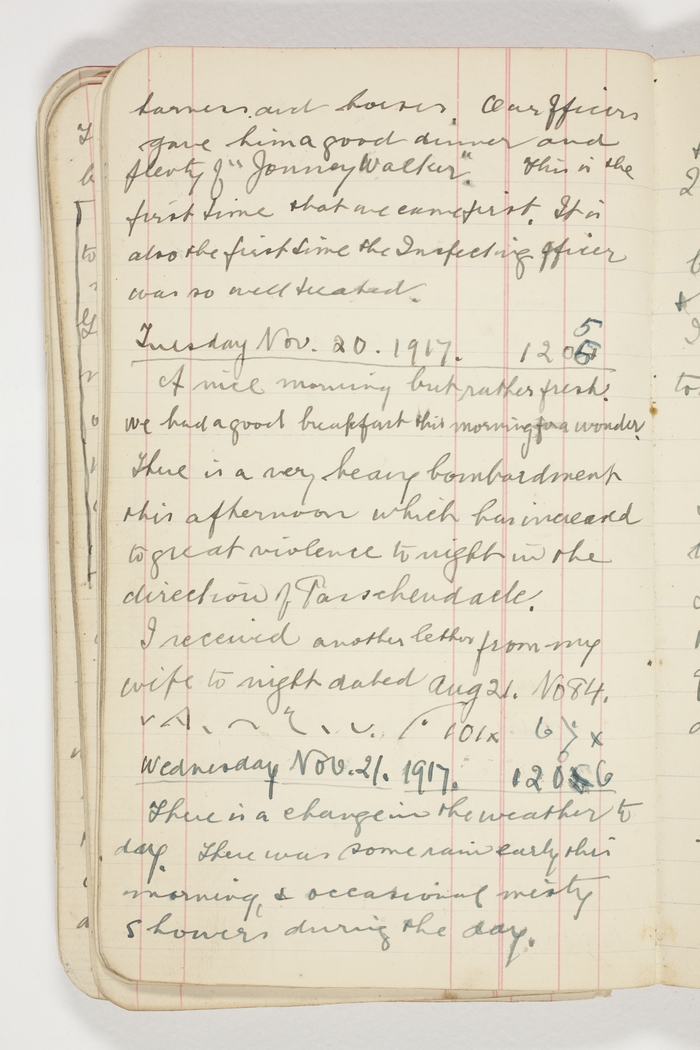 harness and horses. Our Officers
gave him a good dinner and
plenty of "Jonney Walker". This is the
first time that we came first. It is
also the first time the Inspecting Officer
was so well treated.
Tuesday Nov. 20. 1917. 1205
A nice morning but rather fresh.
we had a good breakfast this morning for a wonder.
There is a very heavy bombardment
this afternoon which has increased
to great violence to night in the
direction of Passchendaele.
I received another letter from my
wife to night dated Aug 21. No 84.
101x 67 x
Wednesday Nov. 21. 1917. 1206
There is a change in the weather to
day. There was some rain early this
morning, & occasional misty
showers during the day.